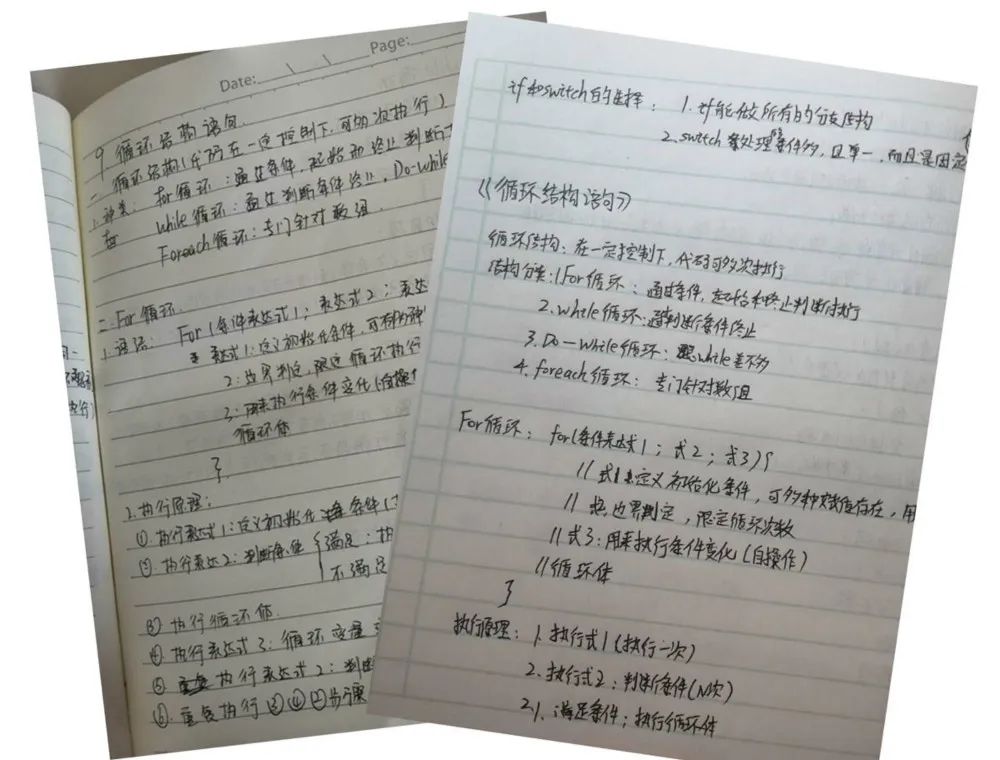 Date: \ \ Page:
9 循环结构语句
一. 循环结构(代码在一定控制下,可多次执行)
1.种类: for循环:通过条件,起始和终止判断
while循环:通过判断条件终止. Do-while
Foreach循环:专门针对数组
二. For循环
1.语法: For(条件表达式1; 表达式2; 表达
表达式1:定义初始化条件,可有多种
2:边界判定,限定循环执行
3:用来执行条件变化(自操作
循环体
}
2.执行原理:
①.执行表达式1:定义初始化 条件(
②.执行表达2:判断条件 满足:执
不满足
③ 执行循环体
④.执行表达式3:循环变量
⑤ 执行表达式2:判断
⑥.重复执行③④②步骤
if和switch的选择: 1. if能做所有的分支结构
2. switch 处理的条件多,且单一,而且是固定
《循环结构语句》
循环结构:在一定控制下,代码可多次执行
结构分类:1.For循环:通过条件,起始和终止判断执行
2. while循环:通过判断条件终止
3. Do-while循环:跟while差不多
4. foreach循环:专门针对数组
For循环: for(条件表达式1; 式2; 式3){
//式1:定义初始化条件,可多种赋值存在,用
// 边界判定,限定循环次数
//式3:用来执行条件变化(自操作)
//循环体
}
执行原理: 1. 执行式1(执行一次)
2. 执行式2:判断条件(N次)
2.1. 满足条件;执行循环体